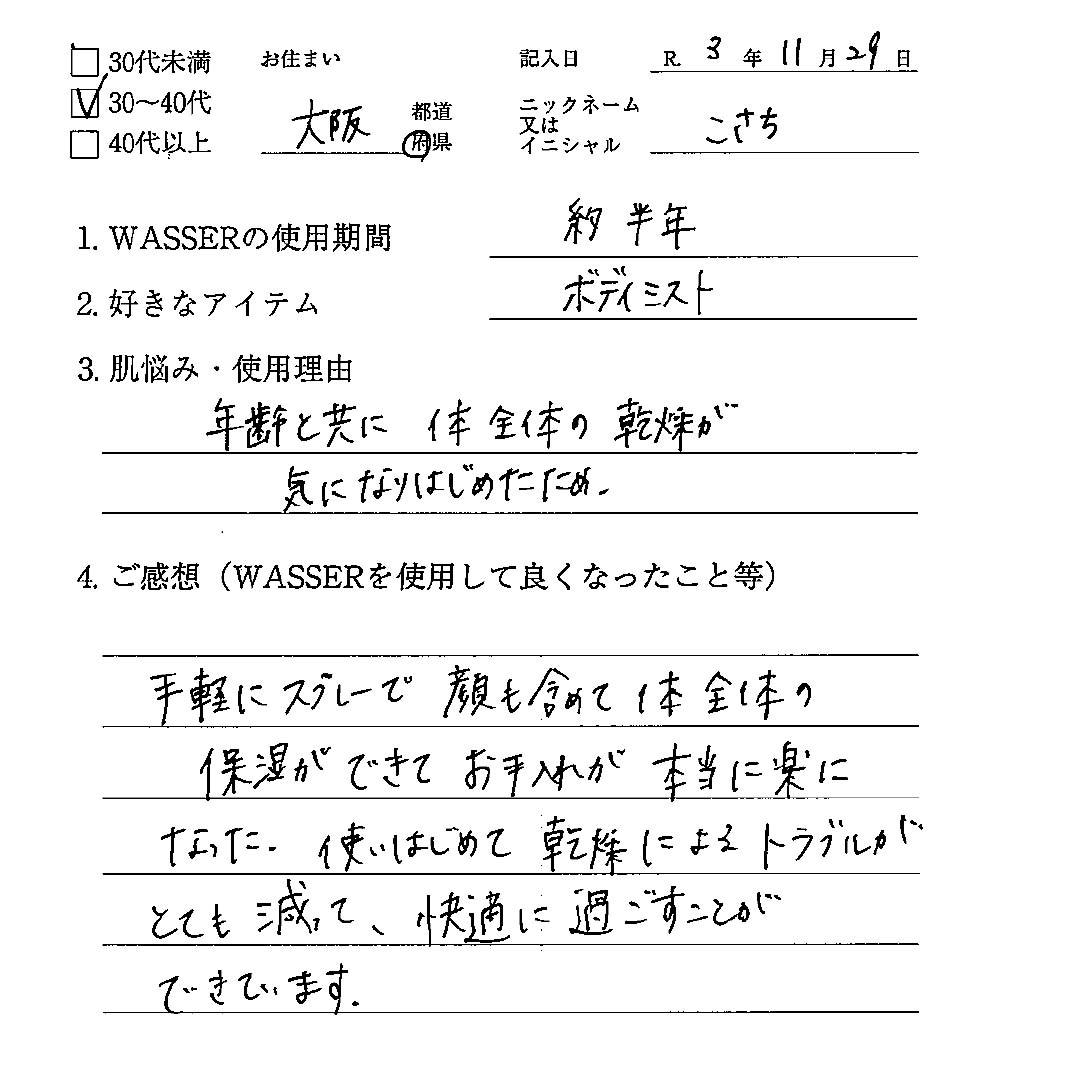 □ 30代未満 お住まい 記入日 R. 3 年 11 月 29 日
☑ 30〜40代 大阪 都道府県 ニックネーム又はイニシャル こさち
□ 40代以上
1. WASSERの使用期間 約半年
2. 好きなアイテム ボディミスト
3. 肌悩み・使用理由
年齢と共に 体全体の乾燥が
気になりはじめたため.
4. ご感想（WASSERを使用して良くなったこと等）
手軽にスプレーで 顔も含めて体全体の
保湿ができて お手入れが 本当に楽に
なった. 使いはじめて 乾燥によるトラブルが
とても減って、快適に過ごすことが
できています.